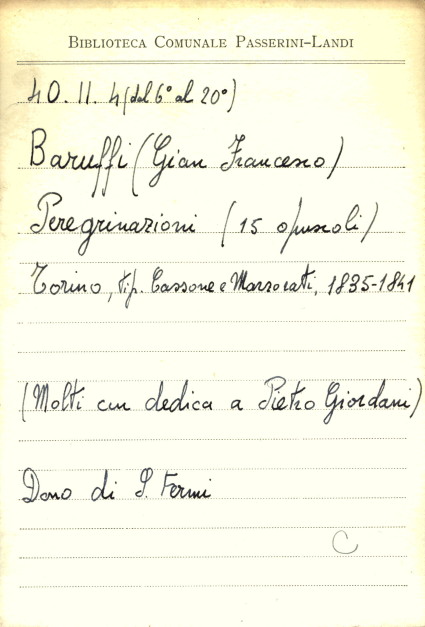 BIBLIOTECA COMUNALE PASSERINI-LANDI
40. II. 4 (dal 6° al 20°)
Baruffi (Gian Francesco)
Peregrinazioni (15 opuscoli)
Torino, tip. Cassone e Marzorati, 1835-1841
(Molti con dedica a Pietro Giordani)
Dono di S. Fermi
C